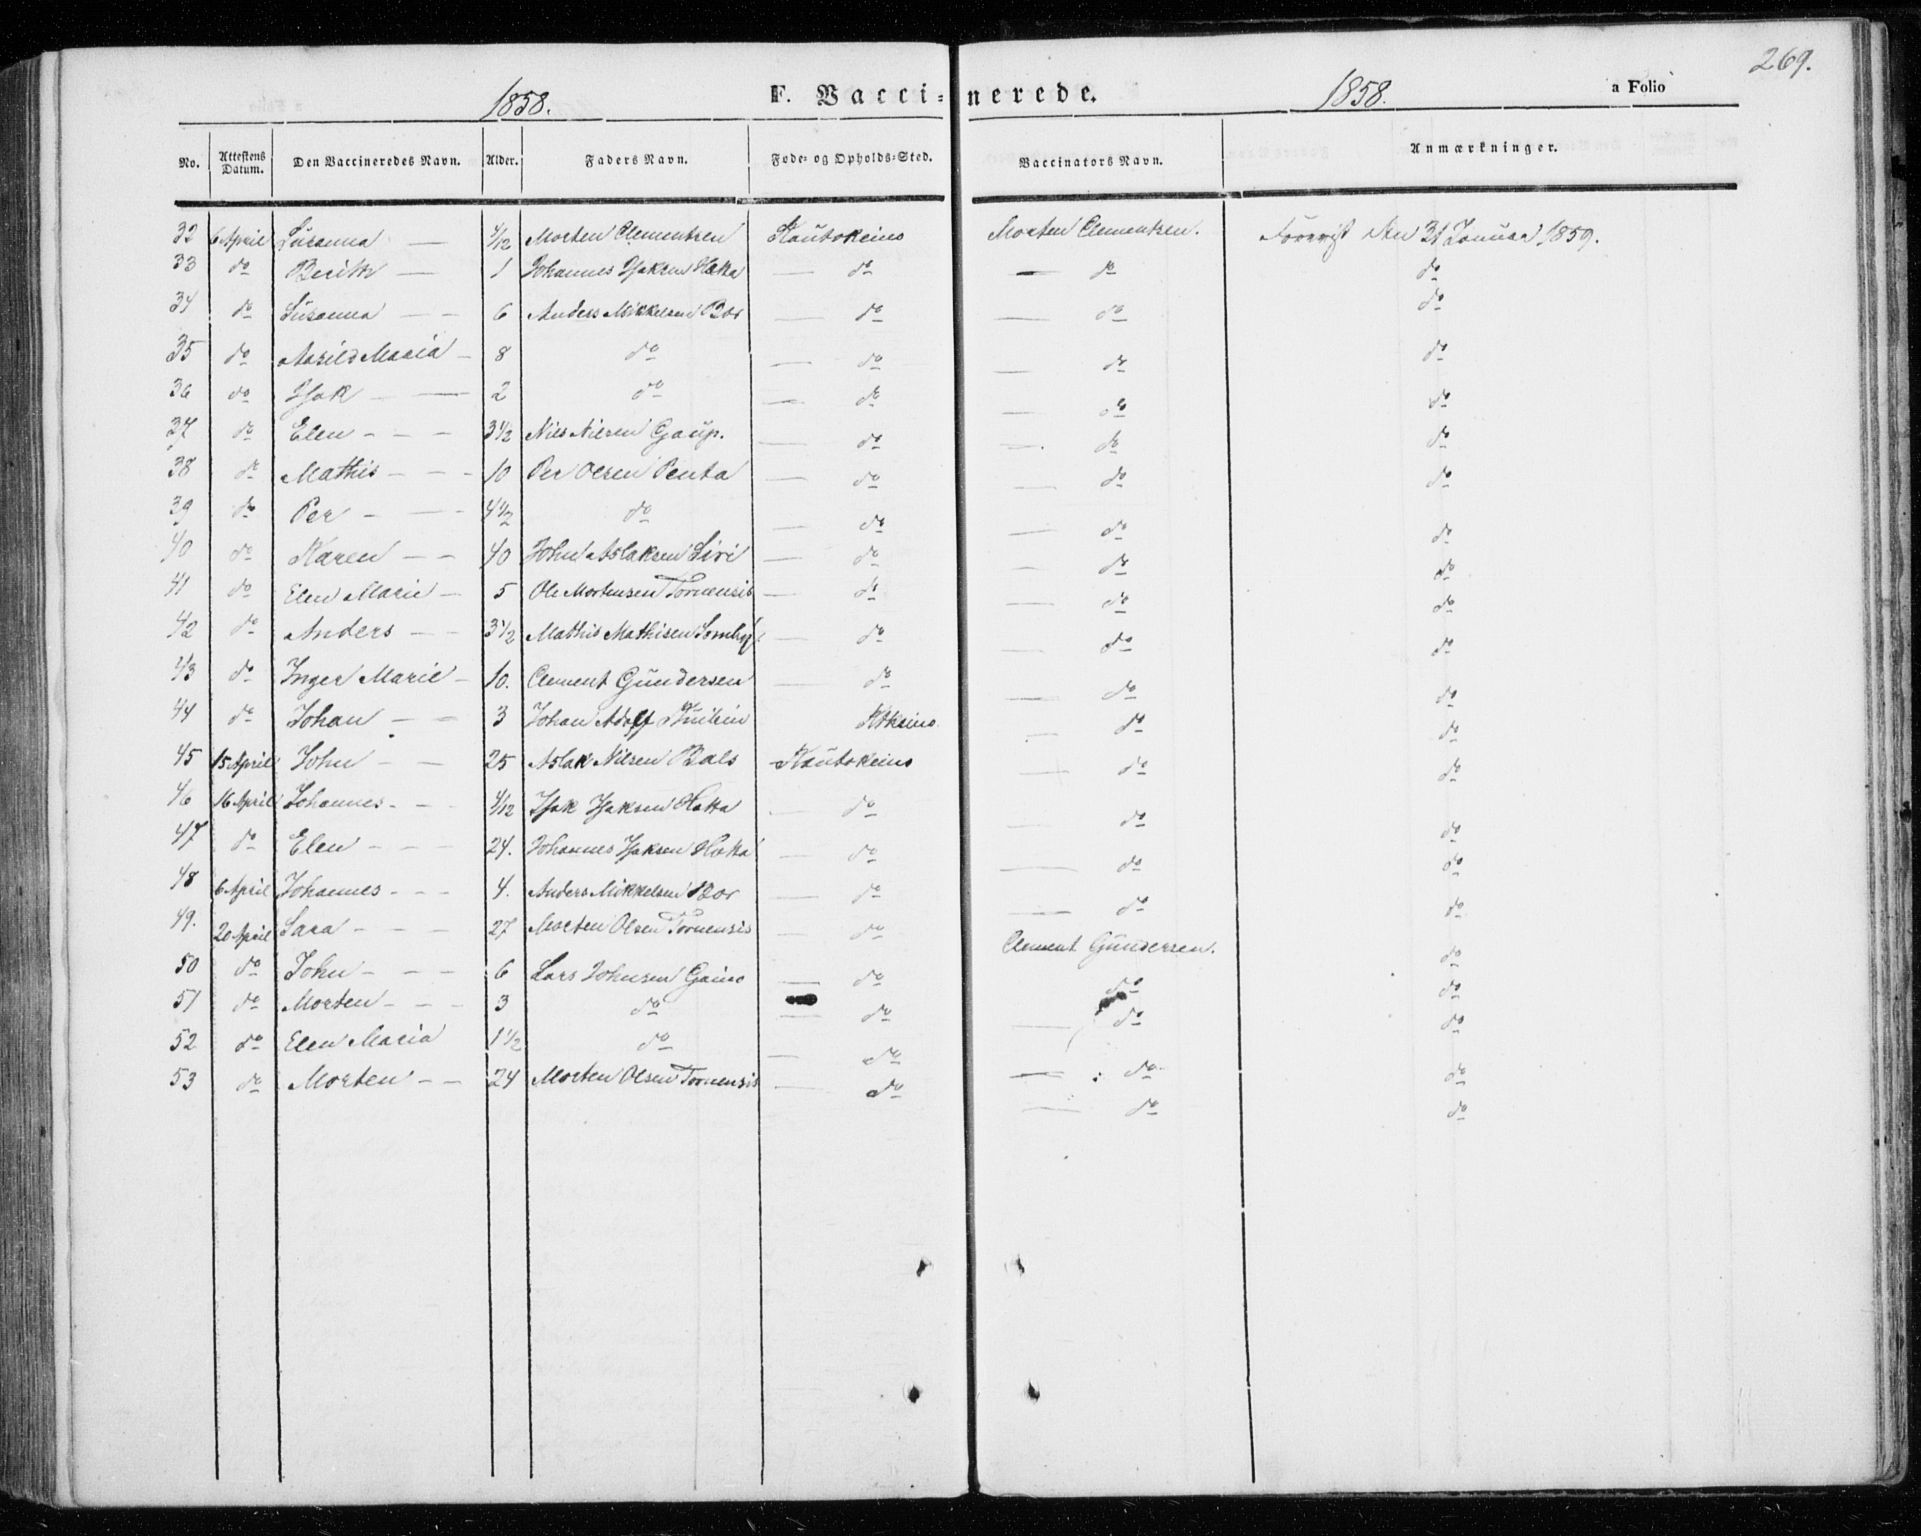 269.
1858. F. Vacci=nerede. 1858. a Folio
No. Attestens Datum. Den Vaccineredes Navn. Alder. Faders Navn. Føde= og Opholds=Sted. Vaccinators Navn. Anmærkninger.
32 6 April Susanna — 4/12 Morten Clementsen Kautokeino Morten Clementsen. Foreviist den 31 Januar 1859.
33 do Berith — 1 Johannes Isaksen Hætta — do — do do
34 do Susanna — — 6 Anders Mikkelsen Bær — do — do do
35 do Maria — 8 do — do — do do
36 do Isak — — 2 do — do — do do
37 do Elen — — — 3 1/2 Nils Nilsen Gaup. — do — do do
38 do Mathis — — — 10 Per Olsen Penta — do — do do
39 do Per — — — 4 1/2 do — do — do do
40 do Karen — — 40 John Aslaksen Siri — do — do do
41 do Elen Marie — 5 Ole Mortensen Tornensis — do — do do
42 do Anders — — 3 1/2 Mathis Mathisen — do — do do
43 do Inger Marie — 10. Clement Gundersen — do — do do
44 do Johan — — 3 Johan Adolf Ktkeino do do
45 15 April John — — 25 Aslak Nilsen Bals Kautokeino — do do
46 16 April Johannes — — 4/12 Isak Isaksen Hætta — do — do do
47 do Elen — — — 24. Johannes Isaksen Hætta — do — do do
48 6 April Johannes — — — 4. Anders Mikkelsen Bær — do — do do
49. 20 April Sara — — — 27 Morten Olsen Tornensis — do Clement Gundersen. do
50 do John — — — 6 Lars Johnsen Gaino — do do do
51 do Morten — — — 3 do — do — do do
52 do Elen Maria 1 1/2 do — do — do do
53 do Morten — — 24 Morten Olsen Tornensis — do — do do